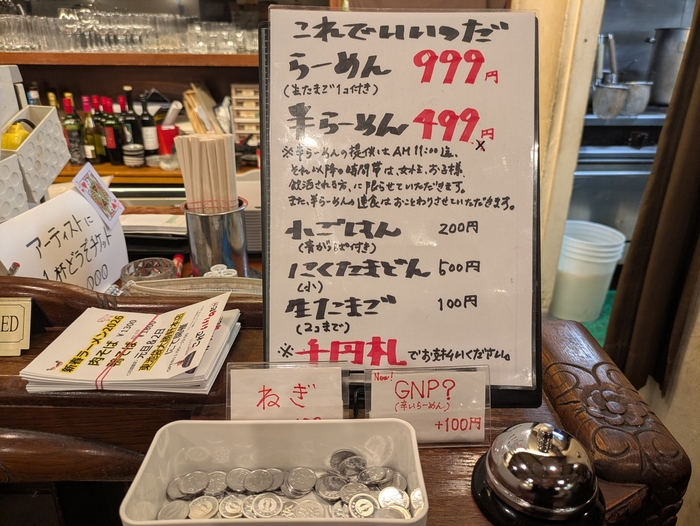 これでいいっだ
らーめん 999円
(生たまご1コ付き)
半らーめん 499円
※半らーめんの提供はAM11:00迄、
それ以降の時間帯は、女性、お子様、
飲酒される方、に限らせていただきます。
また、半らーめんの連食はおことわりさせていただきます。
小ごはん 200円
(青からっぱ付き)
にくたまどん 500円
(小)
生たまご 100円
(2コまで)
※千円札でお支払いください。
ねぎ
New!
GNP?
(辛いらーめん)
+100円
アーティストに
1杯どうもチケット
新春ラーメン2026
肉そば ¥1300
元日&2日
ED